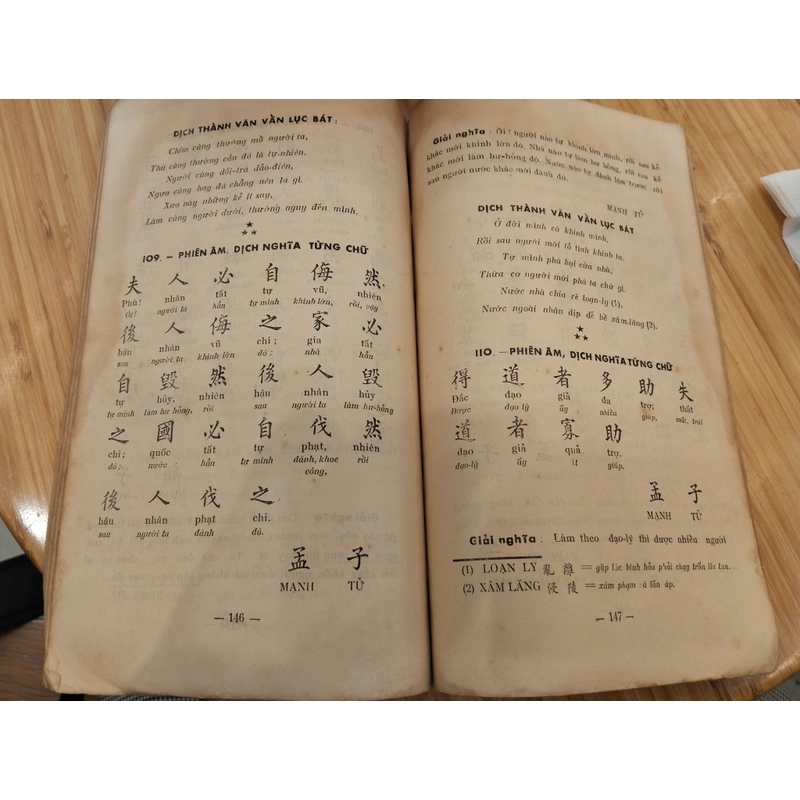 DỊCH THÀNH VĂN VẦN LỤC BÁT :
Chim cùng thường mổ người ta,
Thú cùng thường cắn đó là tự-nhiên.
Người cùng dối-trá đảo-điên,
Ngựa cùng hay đá chẳng nên lạ gì.
Xưa nay những kẻ ít suy,
Làm cùng người dưới, thường nguy đến mình.
109. — PHIÊN ÂM, DỊCH NGHĨA TỪNG CHỮ
夫 人 必 自 侮 然
Phù! nhân tất tự vũ, nhiên
Ôi! người ta hẳn tự mình khinh lờn, rồi, vậy
後 人 侮 之 家 必
hậu nhân vũ chi; gia tất
sau người ta khinh lờn đó; nhà hẳn
自 毀 然 後 人 毀
tự hủy, nhiên hậu nhân hủy
tự mình làm hư hỏng, rồi sau người ta làm hư-hỏng
之 國 必 自 伐 然
chi; quốc tất tự phạt, nhiên
đó; nước hẳn tự mình đánh, khoe rồi
công,
後 人 伐 之
hậu nhân phạt chi.
sau người ta đánh đó.
孟 子
MẠNH TỬ
— 146 —
Giải nghĩa : Ôi! người nào tự khinh lờn mình, rồi sau kẻ
khác mới khinh lờn đó. Nhà nào tự làm hư hỏng, rồi sau kẻ
khác mới làm hư-hỏng đó. Nước nào tự đánh lộn trước rồi
sau người nước khác mới đánh đó.
MẠNH TỬ
DỊCH THÀNH VĂN VẦN LỤC BÁT
Ở đời mình có khinh mình,
Rồi sau người mới tỏ tình khinh ta.
Tự mình phá hại cửa nhà,
Thừa cơ người mới phá ta chứ gì.
Nước nhà chia rẽ loạn-ly (1),
Nước ngoài nhân dịp dễ bề xâm-lăng (2).
110. — PHIÊN ÂM, DỊCH NGHĨA TỪNG CHỮ
得 道 者 多 助 失
Đắc đạo giả đa trợ; thất
Được đạo lý ấy nhiều giúp, mất, trái
道 者 寡 助
đạo giả quả trợ.
đạo-lý ấy ít giúp,
孟 子
MẠNH TỬ
Giải nghĩa : Làm theo đạo-lý thì được nhiều người
(1) LOẠN LY 亂 離 = gặp lúc binh hỏa phải chạy trốn lìa tan.
(2) XÂM LĂNG 侵 陵 = xâm phạm : à lấn áp.
— 147 —